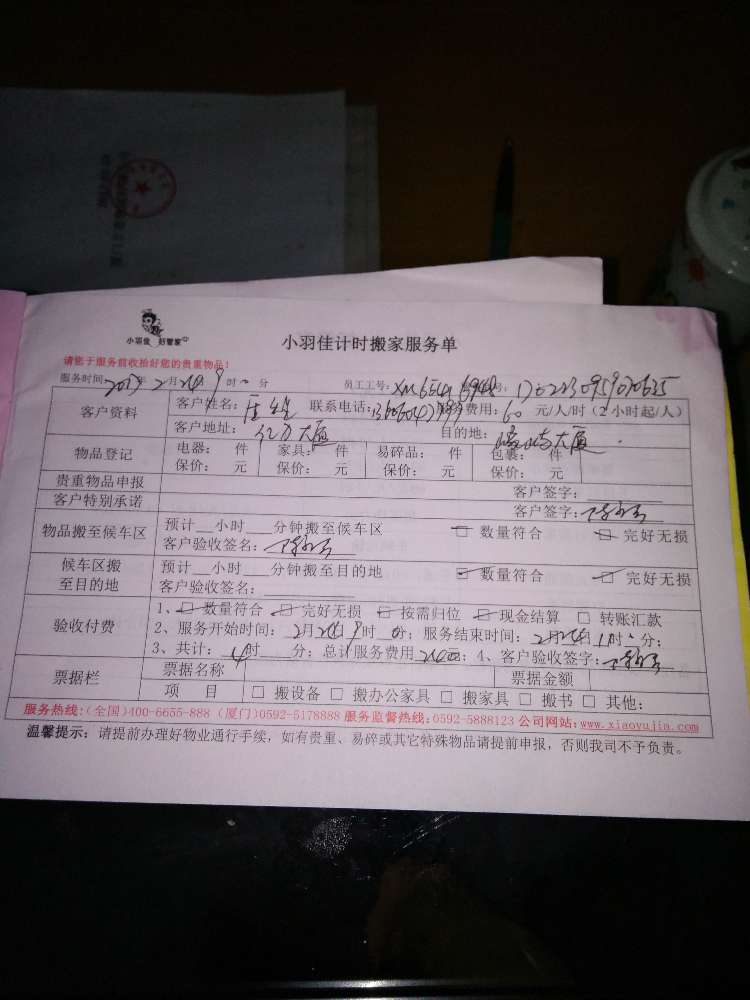 小羽佳 好管家
小羽佳计时搬家服务单
请您于服务前收拾好您的贵重物品！
服务时间：2017年2月24日9时 分 员工工号：
客户资料 客户姓名： 联系电话： 服务费用：60元/人/时（2小时起/人）
客户地址：亿力大厦 目的地：大厦
物品登记 电器： 件 家具： 件 易碎品： 件 包裹： 件
保价： 元 保价： 元 保价： 元 保价： 元
贵重物品申报 客户签字：
客户特别承诺 客户签字：
物品搬至候车区 预计 小时 分钟搬至候车区 数量符合 完好无损
客户验收签名：
候车区搬至目的地 预计 小时 分钟搬至目的地 数量符合 完好无损
客户验收签名：
验收付费 1、数量符合 完好无损 按需归位 现金结算 □ 转账汇款
2、服务开始时间：2月24日9时 分；服务结束时间：2月24日11时 分；
3、共计：4时 分；总计服务费用240元；4、客户验收签字：
票据栏 票据名称 票据金额
项 目 □ 搬设备 □ 搬办公家具 □ 搬家具 □ 搬书 □ 其他：
服务热线：（全国）400-6655-888 （厦门）0592-5178888 服务监督热线：0592-5888123 公司网站：www.xiaoyujia.com
温馨提示：请提前办理好物业通行手续，如有贵重、易碎或其它特殊物品请提前申报，否则我司不予负责。